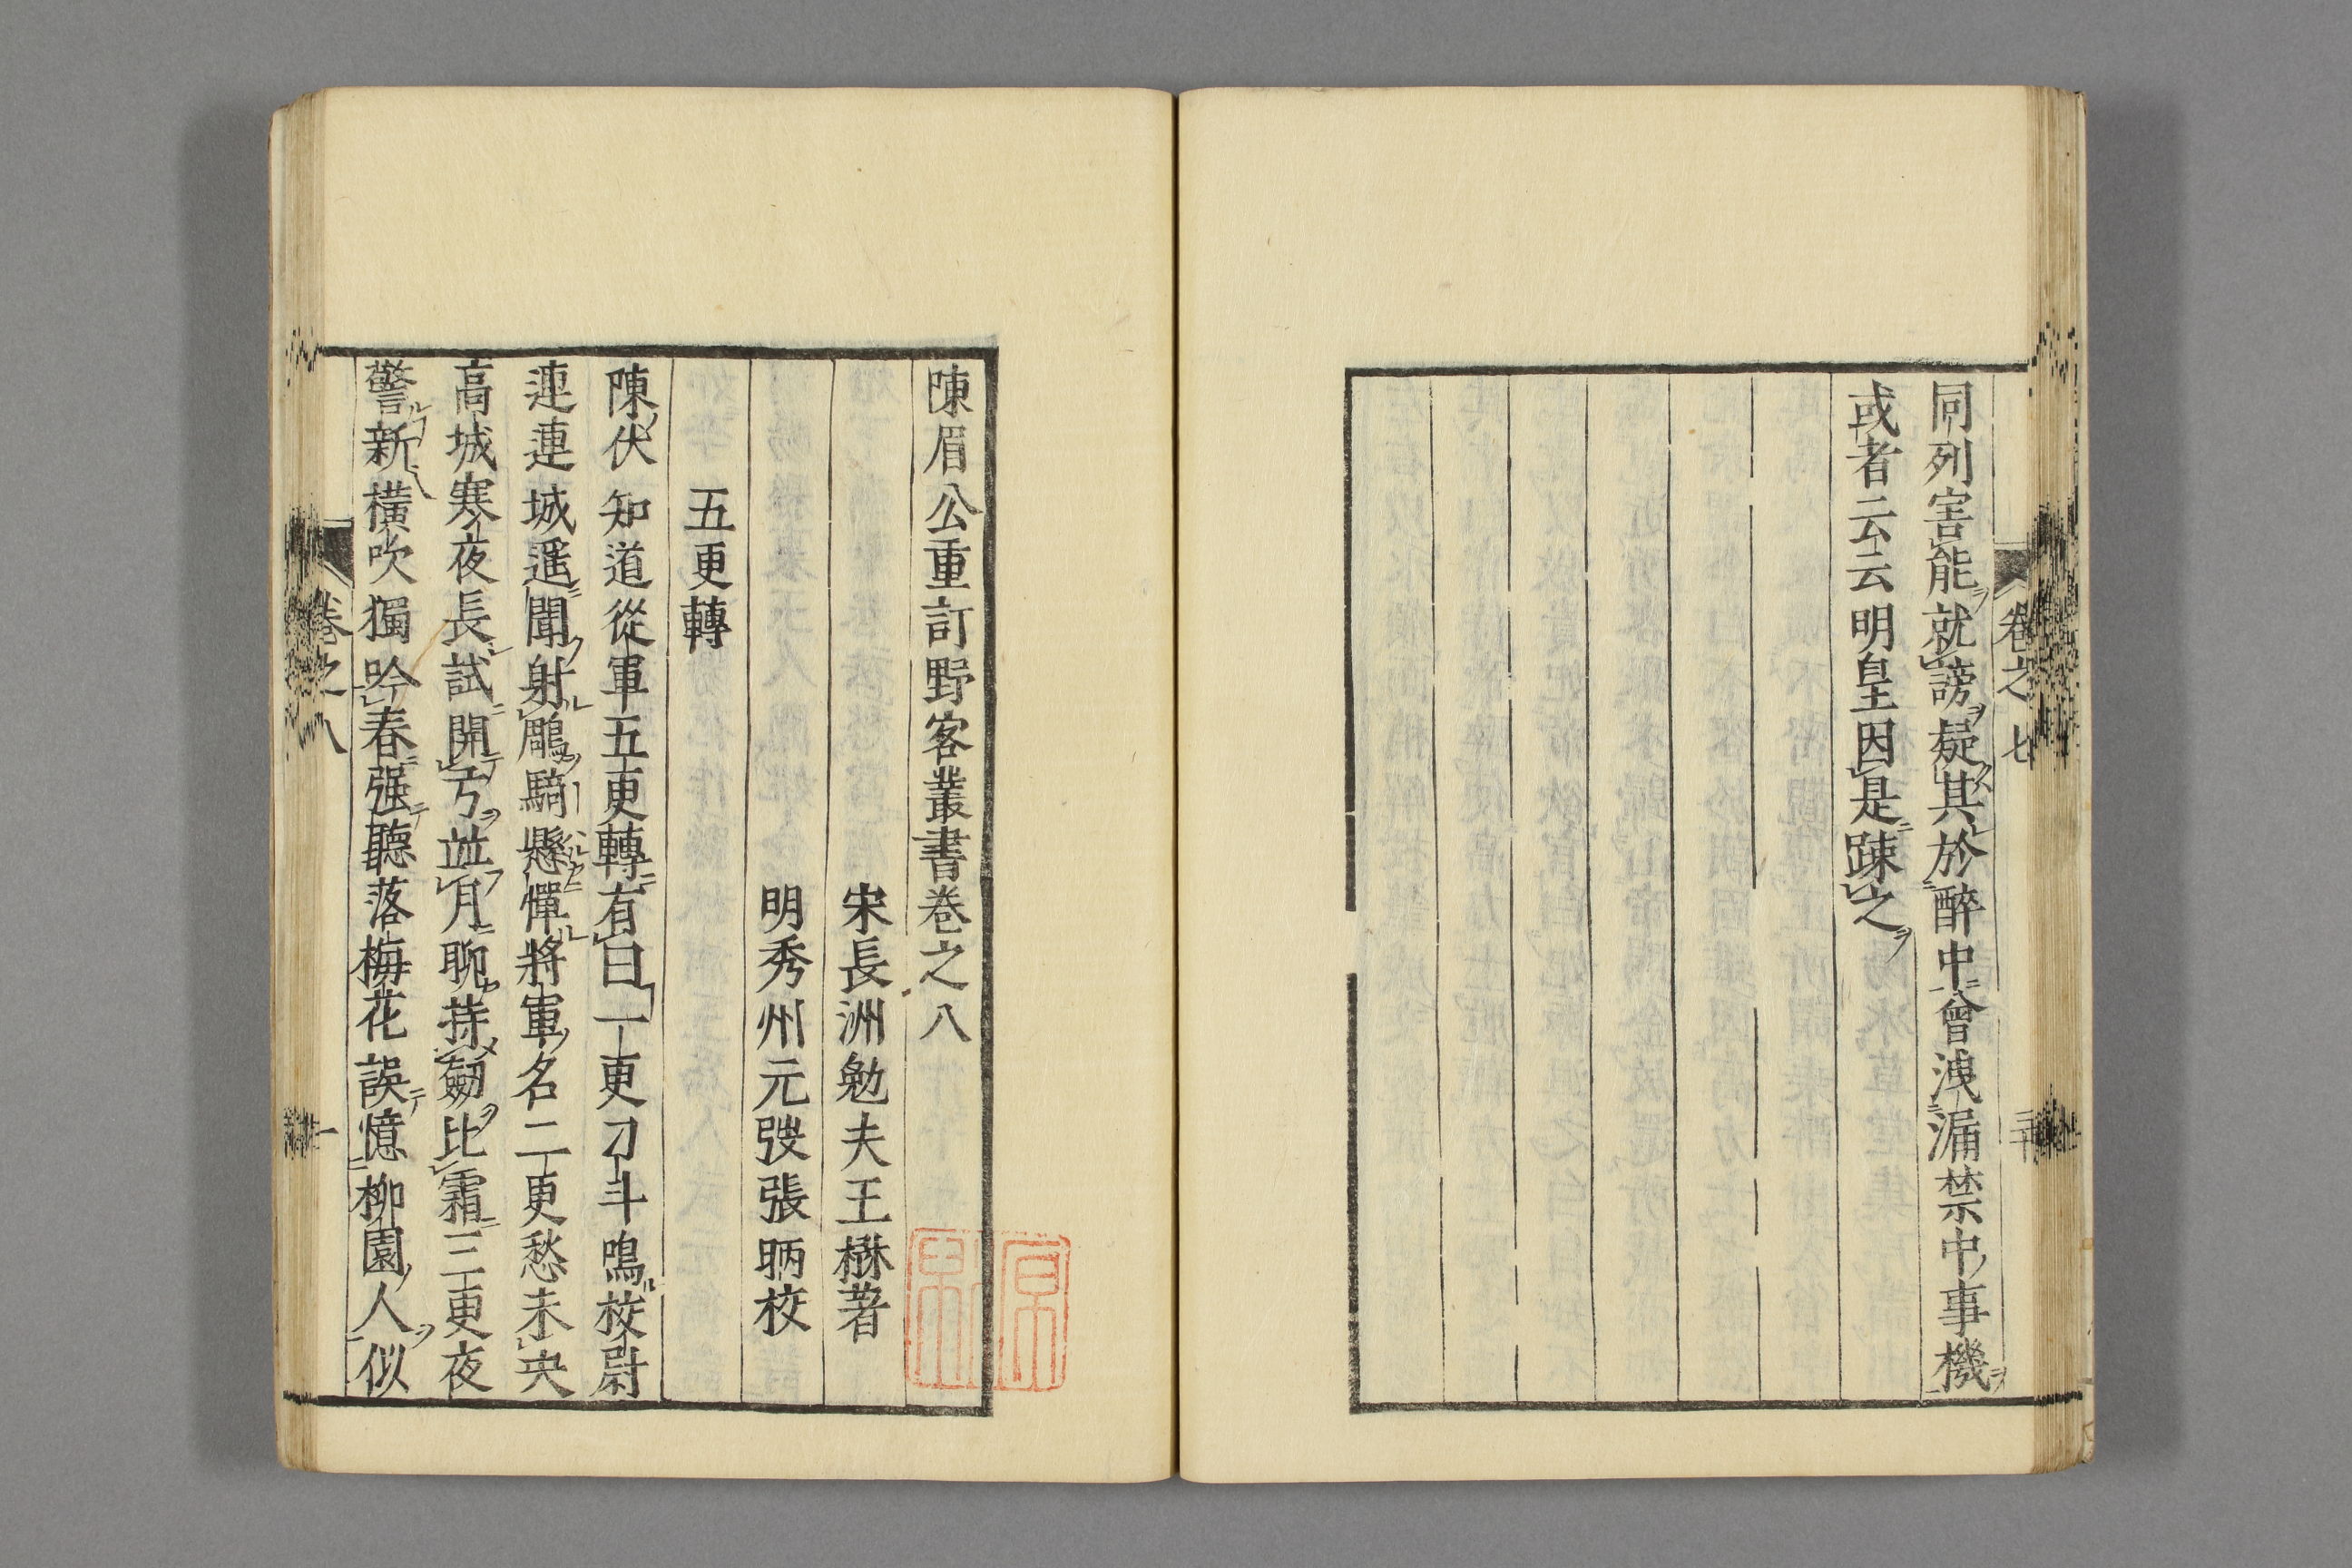 卷之七
三十
同列害能就謗疑其於醉中曾洩漏禁中事機
或者云云明皇因是踈之
陳眉公重訂野客叢書卷之八
宋長洲勉夫王楙著
明秀州元弢張昞校
五更轉
陳伏知道從軍五更轉有曰一更刁斗鳴校尉
連連城遥聞射鵰騎懸憚將軍名二更愁未央
高城寒夜長試開弓並月聊持劒比霜三更夜
警新橫吹獨吟春强聽落梅花誤憶柳園人似
卷之八
一